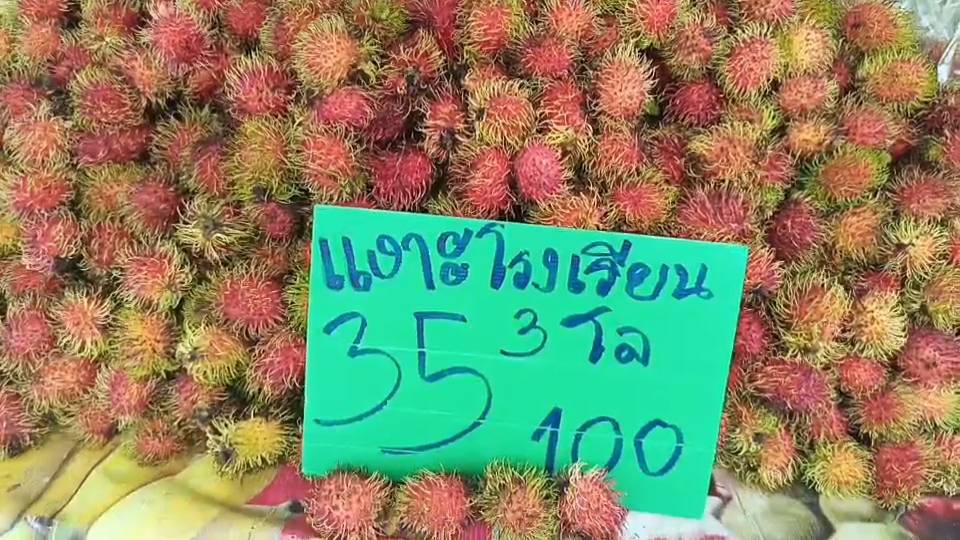 เงาะโรงเรียน
35 3 โล
100